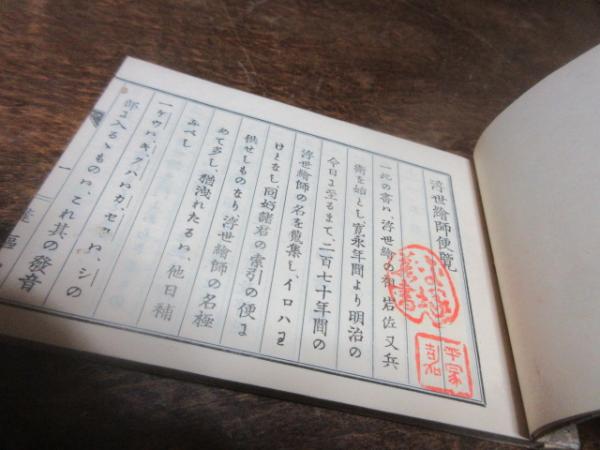 浮世繪師便覽
一此の書ハ、浮世繪の祖岩佐又兵
衛を始とし、寛永年間より明治の
今日に至るまて、二百七十年間の
浮世繪師の名を蒐集し、イロハわ
けとなし、同好諸君の索引の便に
供せしものなり、浮世繪師の名極
めて多し、猶洩れたるハ、他日補
ふべし
一ケウハキ、クハハカ、セウハ、シの
部に入るゝものハ、これ其の發音
一